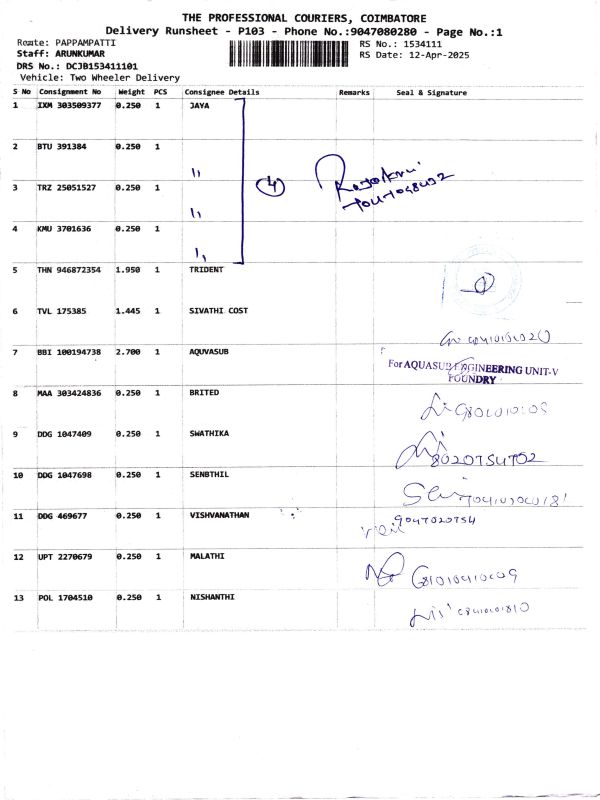 THE PROFESSIONAL COURIERS, COIMBATORE
Delivery Runsheet - P103 - Phone No.:9047080280 - Page No.:1
Route: PAPPAMPATTI
RS No.: 1534111
Staff: ARUNKUMAR
RS Date: 12-Apr-2025
DRS No.: DCJB153411101
Vehicle: Two Wheeler Delivery
S No Consignment No Weight PCS Consignee Details Remarks Seal & Signature
1 IXM 303509377 0.250 1 JAYA
2 BTU 391384 0.250 1
3 TRZ 25051527 0.250 1
4
4 KMU 3701636 0.250 1
5 THN 946872354 1.950 1 TRIDENT
6 TVL 175385 1.445 1 SIVATHI COST
7 BBI 100194738 2.700 1 AQUVASUB
For AQUASUB ENGINEERING UNIT-V
FOUNDRY
8 MAA 303424836 0.250 1 BRITED
9 DDG 1047409 0.250 1 SWATHIKA
8020754702
10 DDG 1047698 0.250 1 SENBTHIL
11 DDG 469677 0.250 1 VISHVANATHAN
9047020754
12 UPT 2270679 0.250 1 MALATHI
13 POL 1704510 0.250 1 NISHANTHI